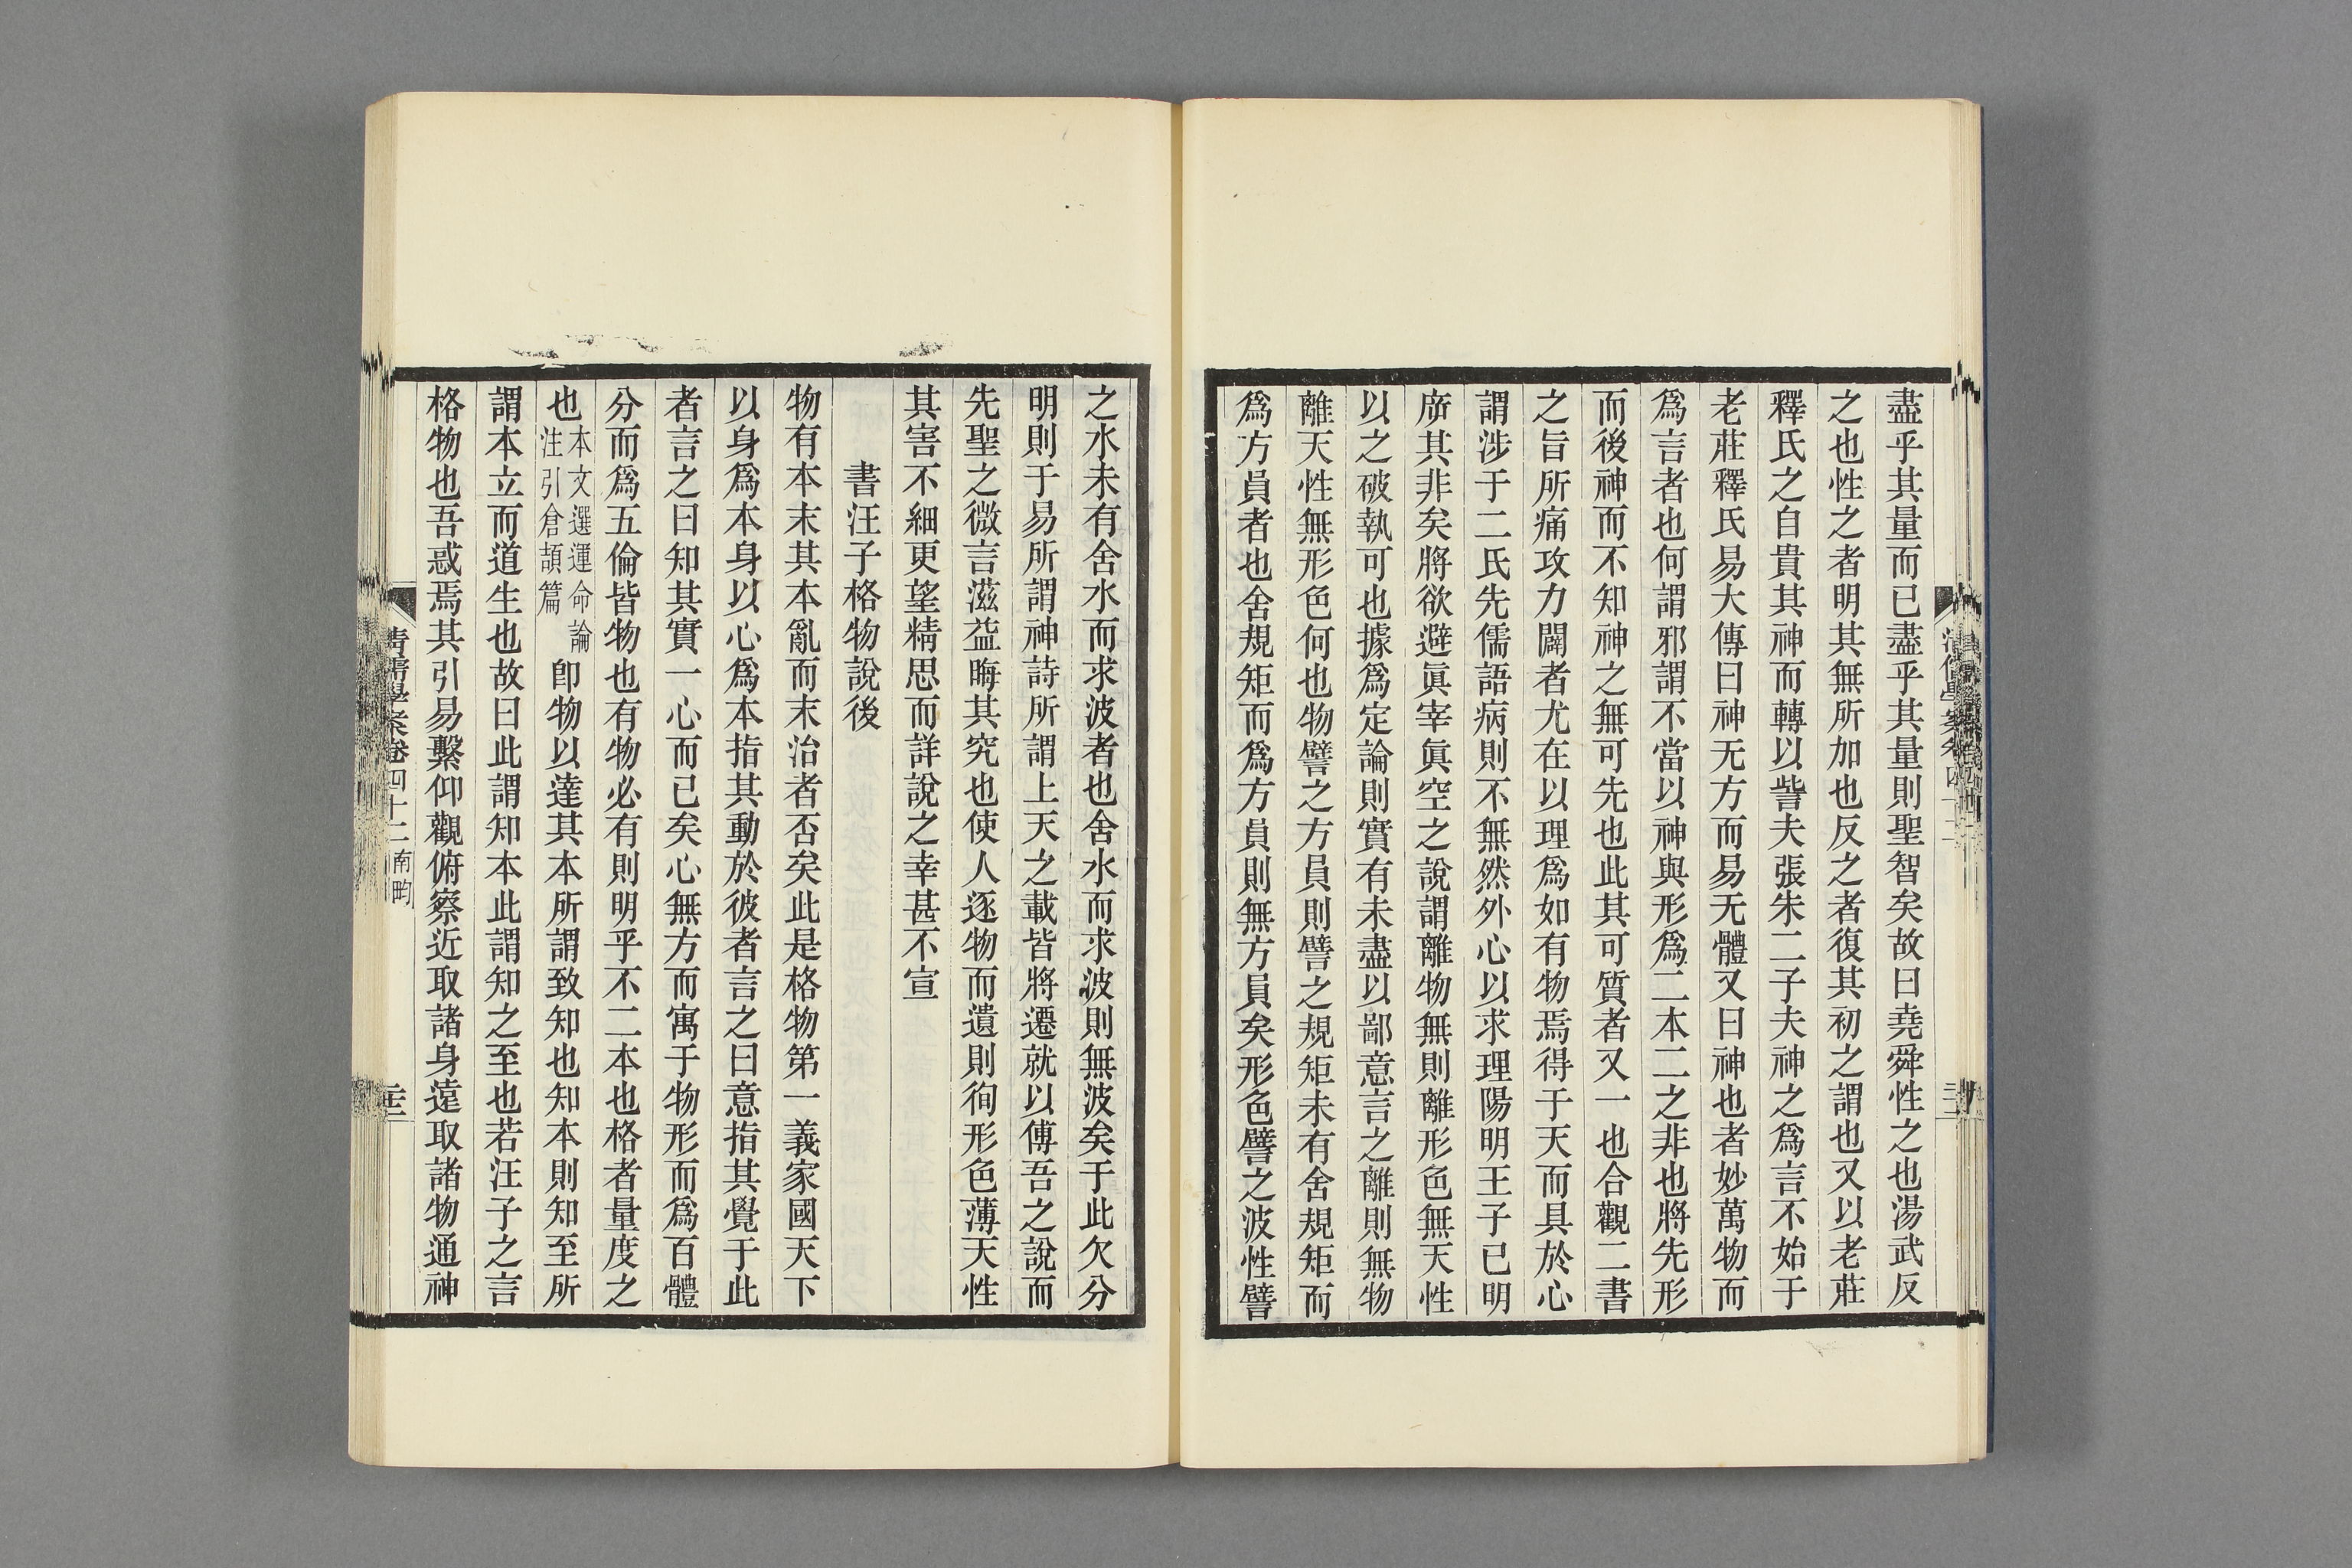 盡乎其量而已盡乎其量則聖智矣故曰堯舜性之也湯武反
之也性之者明其無所加也反之者復其初之謂也又以老莊
釋氏之自貴其神而轉以訾夫張朱二子夫神之爲言不始于
老莊釋氏易大傳曰神无方而易无體又曰神也者妙萬物而
爲言者也何謂邪謂不當以神與形爲二本二之非也將先形
而後神而不知神之無可先也此其可質者又一也合觀二書
之旨所痛攻力闢者尤在以理爲如有物焉得于天而具於心
謂涉于二氏先儒語病則不無然外心以求理陽明王子已明
庌其非矣將欲避眞宰眞空之說謂離物無則離形色無天性
以之破執可也據爲定論則實有未盡以鄙意言之離則無物
離天性無形色何也物譬之方員則譬之規矩未有舍規矩而
爲方員者也舍規矩而爲方員則無方員矣形色譬之波性譬
之水未有舍水而求波者也舍水而求波則無波矣于此欠分
明則于易所謂神詩所謂上天之載皆將遷就以傅吾之說而
先聖之微言滋益晦其究也使人逐物而遺則徇形色薄天性
其害不細更望精思而詳說之幸甚不宣
書汪子格物說後
物有本末其本亂而末治者否矣此是格物第一義家國天下
以身爲本身以心爲本指其動於彼者言之曰意指其覺于此
者言之曰知其實一心而已矣心無方而寓于物形而爲百體
分而爲五倫皆物也有物必有則明乎不二本也格者量度之
也本文選運命論注引倉頡篇卽物以達其本所謂致知也知本則知至所
謂本立而道生也故曰此謂知本此謂知之至也若汪子之言
格物也吾惑焉其引易繫仰觀俯察近取諸身遠取諸物通神
清儒學案卷四十二 南畇